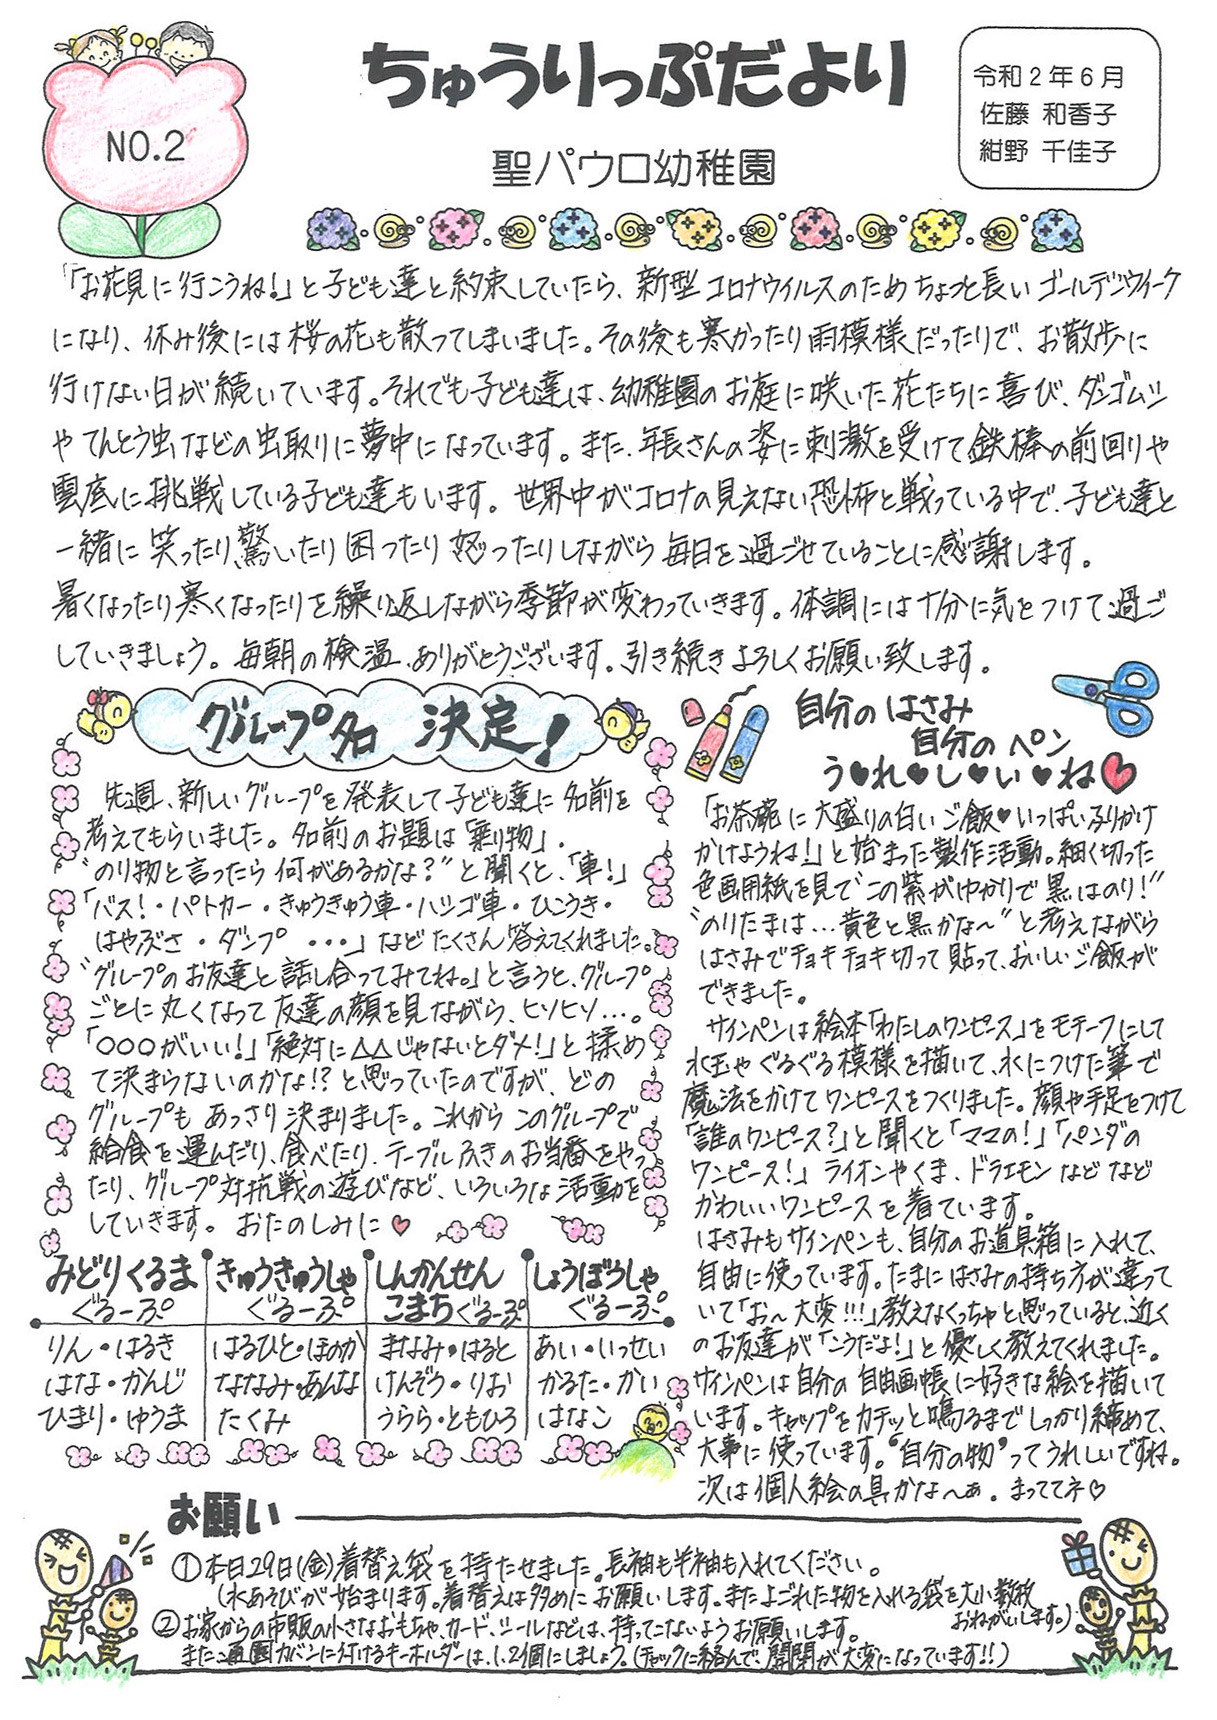 NO.2
ちゅうりっぷだより
聖パウロ幼稚園
令和2年6月
佐藤 和香子
紺野 千佳子
「お花見に行こうね!」と子ども達と約束していたら、新型コロナウイルスのためちょっと長いゴールデンウィーク
になり、休み後には桜の花も散ってしまいました。その後も寒かったり雨模様だったりで、お散歩に
行けない日が続いています。それでも子ども達は、幼稚園のお庭に咲いた花たちに喜び、ダンゴムシ
やてんとう虫などの虫取りに夢中になっています。また、年長さんの姿に刺激を受けて鉄棒の前回りや
雲底に挑戦している子ども達もいます。世界中がコロナの見えない恐怖と戦っている中で、子ども達と
一緒に笑ったり驚いたり困ったり怒ったりしながら毎日を過ごせていることに感謝します。
暑くなったり寒くなったりを繰り返しながら季節が変わっていきます。体調には十分に気をつけて過ご
していきましょう。毎朝の検温、ありがとうございます。引き続きよろしくお願い致します。
グループ名 決定!
先週、新しいグループを発表して子ども達に名前を
考えてもらいました。名前のお題は「乗り物」。
"のり物と言ったら何があるかな?"と聞くと、「車!」
「バス!・パトカー・きゅうきゅう車・ハシゴ車・ひこうき・
はやぶさ・ダンプ ・・・」などたくさん答えてくれました。
"グループのお友達と話し合ってみてね。」と言うと、グループ
ごとに丸くなって友達の顔を見ながら、ヒソヒソ…。
「○○○がいい!」「絶対に△△じゃないとダメ!」と揉め
て決まらないのかな!?と思っていたのですが、どの
グループもあっさり決まりました。これからこのグループで
給食を運んだり、食べたり、テーブルふきのお当番をやっ
たり、グループ対抗戦の遊びなど、いろいろな活動を
していきます。おたのしみに♥
みどりくるま
ぐるーぷ
りん・はるき
はな・かんじ
ひまり・ゆうま
きゅうきゅうしゃ
ぐるーぷ
はるひと・ほのか
ななみ・あんな
たくみ
しんかんせん
こまちぐるーぷ
まなみ・はると
けんぞう・りお
うらら・ともひろ
しょうぼうしゃ
ぐるーぷ
あい・いっせい
かるた・かい
はなこ
自分のはさみ
自分のペン
う♥れ♥し♥い♥ね♥
「お茶碗に大盛りの白いご飯♥いっぱいふりかけ
かけようね!」と始まった製作活動。細く切った
色画用紙を見て"この紫がゆかりで黒はのり!"
"のりたまは…黄色と黒かな〜"と考えながら
はさみでチョキチョキ切って貼って、おいしいご飯が
できました。
サインペンは絵本「わたしのワンピース」をモチーフにして
水玉やぐるぐる模様を描いて、水につけた筆で
魔法をかけてワンピースをつくりました。顔や手足をつけて
「誰のワンピース?」と聞くと「ママの!」「パンダの
ワンピース!」ライオンやくま、ドラエモンなどなど
かわいいワンピースを着ています。
はさみもサインペンも、自分のお道具箱に入れて、
自由に使っています。たまにはさみの持ち方が違って
いて「お〜大変!!!」教えなくっちゃと思っていると、近く
のお友達が「こうだよ!」と優しく教えてくれました。
サインペンは自分の自由画帳に好きな絵を描いて
います。キャップをカチッと鳴るまでしっかり締めて、
大事に使っています。"自分の物"ってうれしいですね。
次は個人絵の具かな〜ぁ。まっててネ♡
お願い
①本日29日(金)着替え袋を持たせました。長袖も半袖も入れてください。
(水あそびが始まります。着替えは多めにお願いします。またよごれた物を入れる袋を大小数枚
おねがいします。)
②お家からの市販の小さなおもちゃ、カード、シールなどは、持ってこないようお願いします。
また通園カバンに付けるキーホルダーは、1、2個にしましょう。(チャックに絡んで、開閉が大変になっています!!)